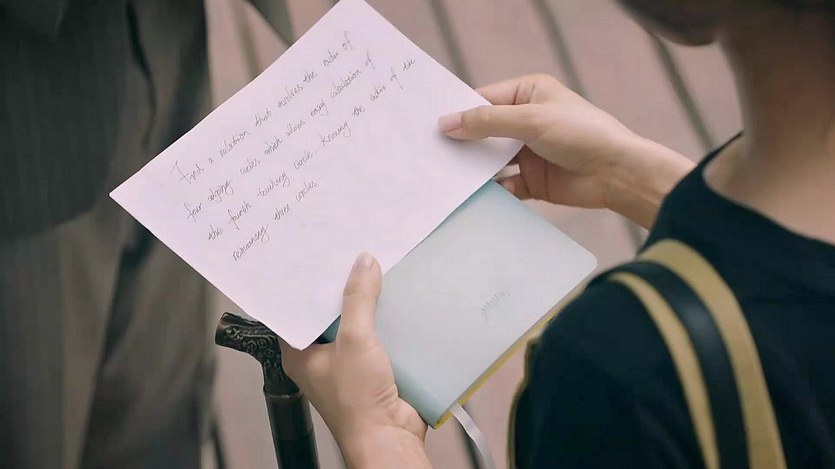 Find a relation that involves the radii of
four adjoing circles, which allows easy calculation of
the fourth touching circle knowing the radii of the
remaining three circles